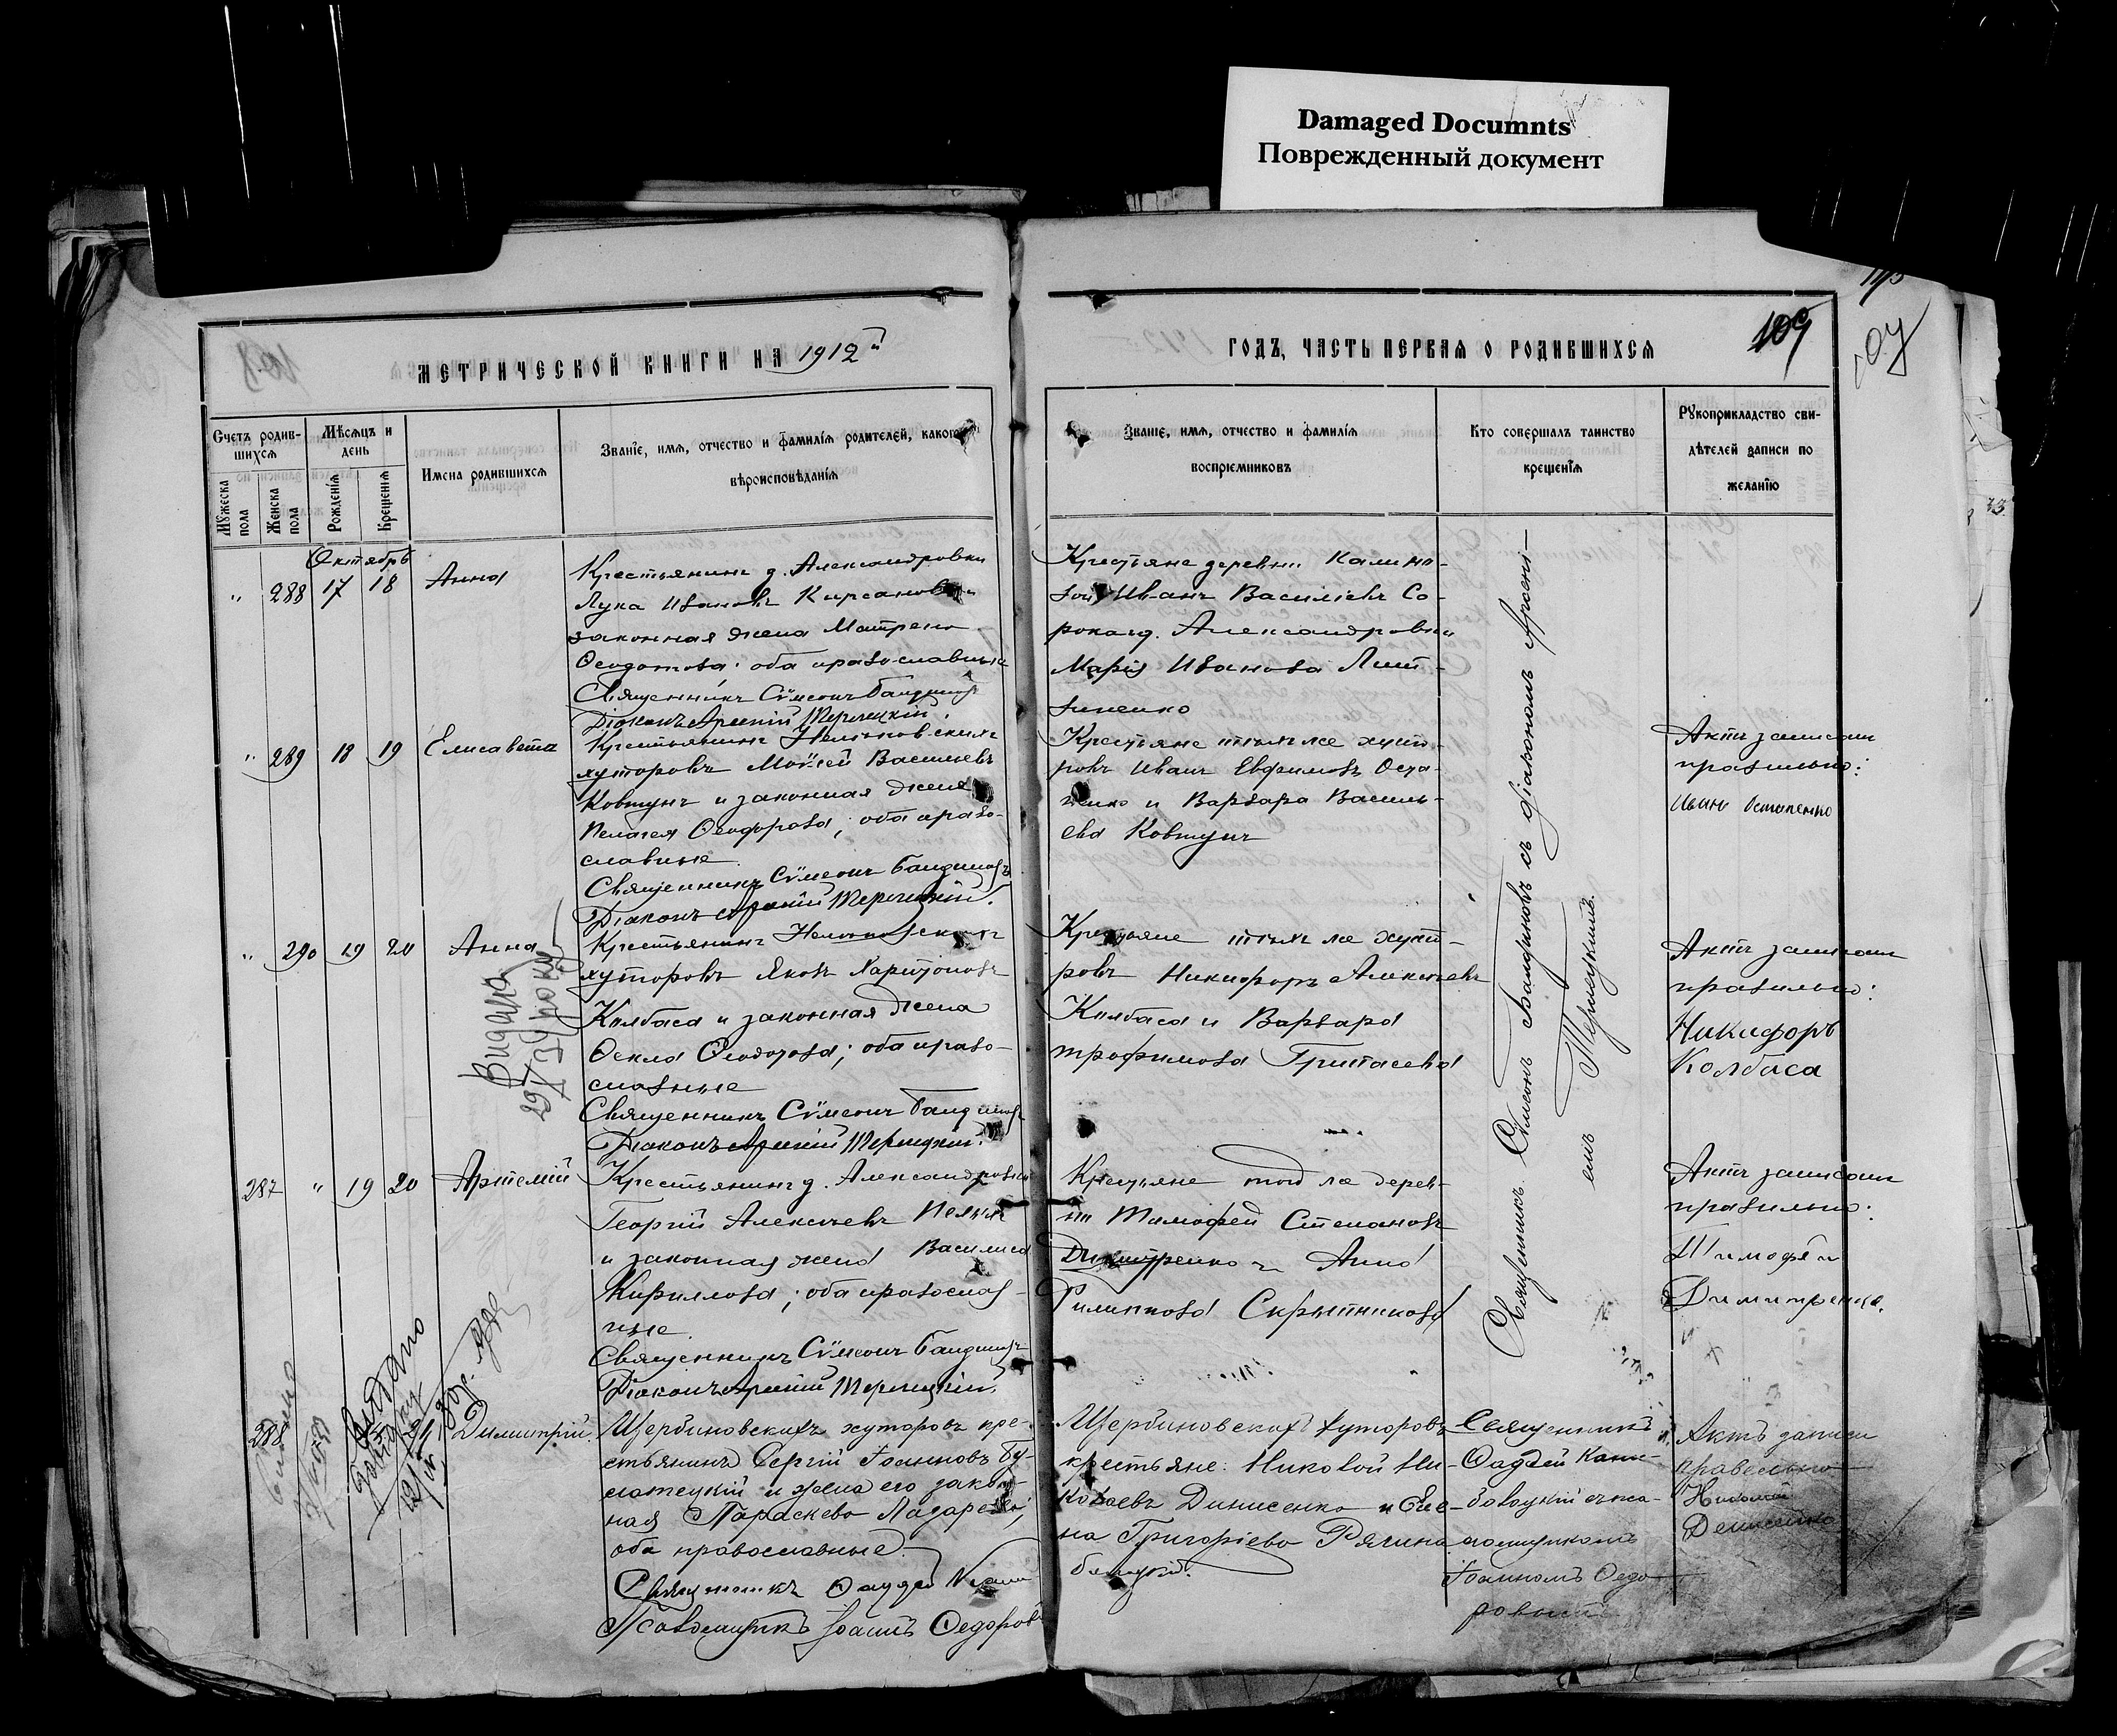 Damaged Documnts
Поврежденный документ
МЕТРИЧЕСКОЙ КНИГИ НА 1912й
ГОДЪ, ЧАСТЬ ПЕРВАЯ О РОДИВШИХСЯ
109
107
Счетъ родив-
шихся
Мужеска пола
Женска пола
Мѣсяцъ и
день
Рожденія
Крещенія
Имена родившихся
Званіе, имя, отчество и фамилія родителей, какого
вѣроисповѣданія
Званіе, имя, отчество и фамилія
воспріемниковъ
Кто совершалъ таинство
крещенія
Рукоприкладство сви-
дѣтелей записи по
желанію
Октябрь
" 288 17 18 Анна
Крестьянинъ д. Александровки
Лука Ивановъ Кирсановъ и
законная жена Матрена
Ѳеодотова; оба православные
Священникъ Сѵмеонъ
Діаконъ Арсеній Терлецкій.
Крестьяне деревни Калино-
вой Иванъ Василіевъ Со-
рока и д. Александровки
Марія Иванова Лит-
виненко
" 289 18 19 Елисавета
Крестьянинъ
хуторовъ Моисей Васильевъ
Ковтунъ и законная жена
Пелагея Ѳеодорова; оба право-
славные.
Священникъ Сѵмеонъ
Діаконъ Арсеній Терлецкій.
Крестьяне тѣхъ же хуто-
ровъ Иванъ Евфимовъ Оста-
пенко и Варвара Василь-
ева Ковтунъ
Актъ записанъ
правильно:
Иванъ Остапенко
" 290 19 20 Анна
Крестьянинъ
хуторовъ Яковъ Харитоновъ
Колбаса и законная жена
Ѳекла Ѳеодорова; оба право-
славные
Священникъ Сѵмеонъ
Діаконъ Арсеній Терлецкій.
Крестьяне тѣхъ же хуто-
ровъ Никифоръ Алексѣевъ
Колбаса и Варвара
Трофимова
Актъ записанъ
правильно:
Никифоръ
Колбаса
Видана
287 " 19 20 Артемій
Крестьянинъ д. Александровки
Георгій Алексѣевъ
и законная жена Василиса
Кириллова; оба православ-
ные.
Священникъ Сѵмеонъ
Діаконъ Арсеній Терлецкій.
Крестьяне той же дерев-
ни Тимофей Степановъ
Димитренко и Анна
Филиппова Скрыпникова
Актъ записанъ
правильно:
Тимофѣй
Димитренко.
Священникъ Симеонъ съ діакономъ Арсені-
емъ Терлецкимъ.
288
Видано
Димитрій.
Щербиновскихъ хуторовъ кре-
стьянинъ Сергій Іоанновъ
и жена его закон-
ная Параскева Лазарева;
оба православные.
Священникъ Ѳаддей
Псаломщикъ Іоаннъ Ѳедоровъ
Щербиновскихъ хуторовъ
крестьяне: Николай Ни-
колаевъ Денисенко и Еле-
на Григоріева
Священникъ
Ѳаддей
съ пса-
ломщикомъ
Іоанномъ Ѳедо-
ровымъ
Актъ записи
правельно
Николай
Денисенко